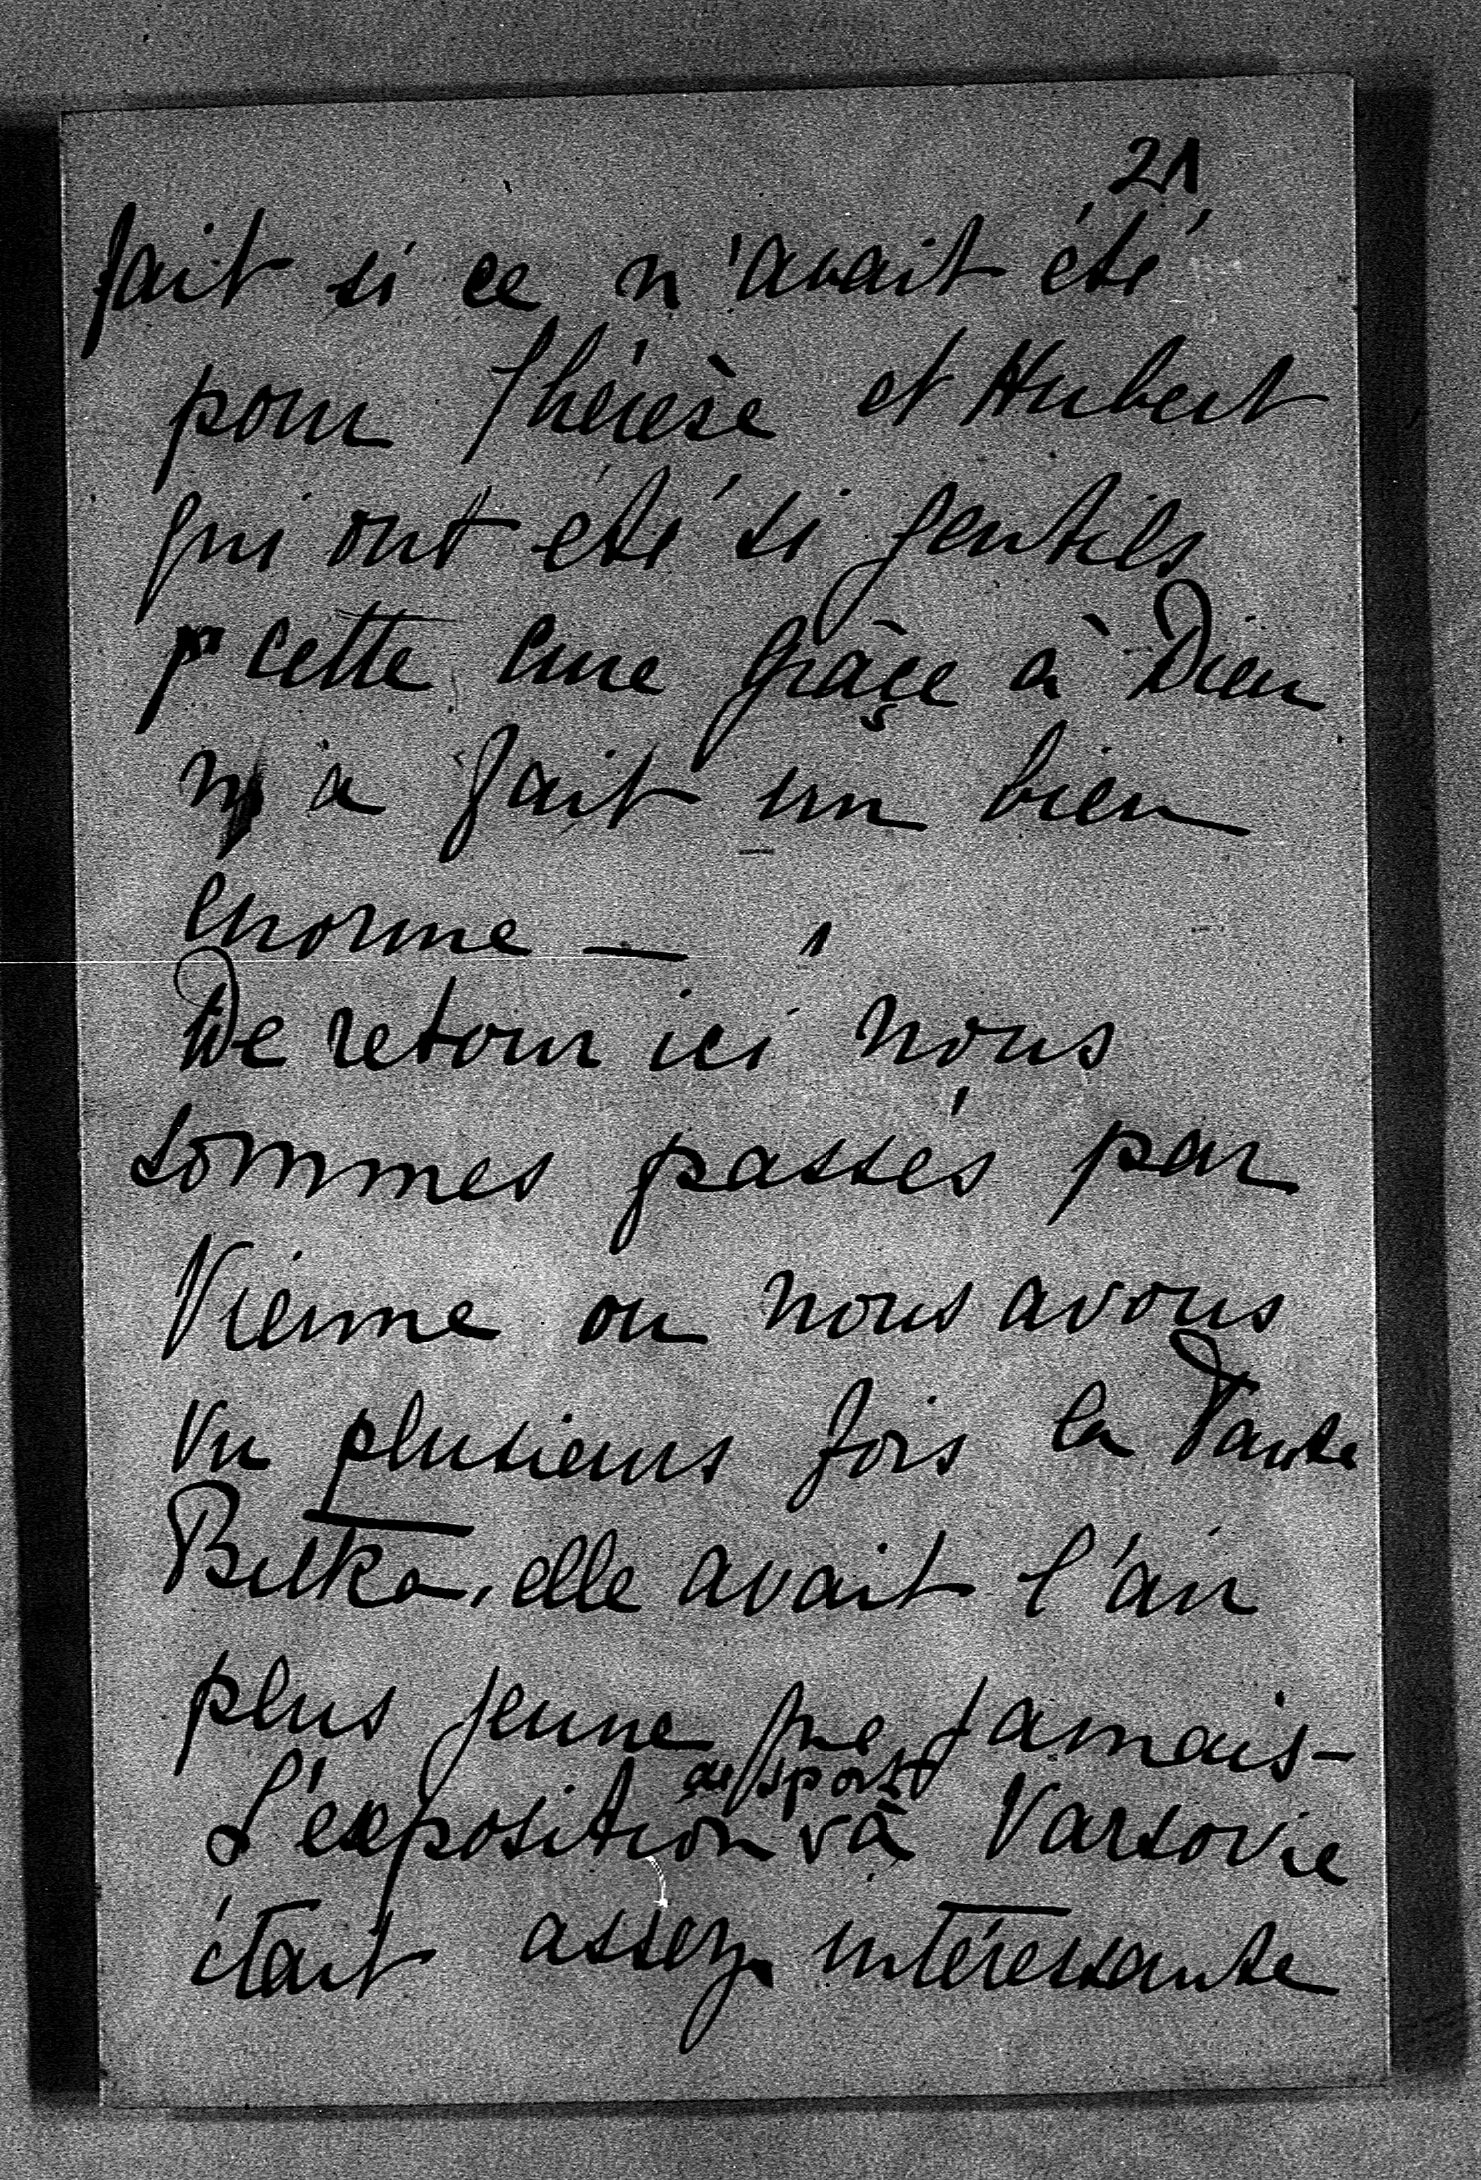 21
fait si ce n'avait été
pour Thérèse et Hubert
qui ont été si gentils
pr cette cure grâçe à Dieu
m'a fait un bien
énorme —
De retour ici nous
sommes passés par
Vienne ou nous avons
vu plusieurs fois la Tante
Betka, elle avait l'air
plus jeune que jamais —
de sport
L'exposition à Varsovie
était assez intéressante